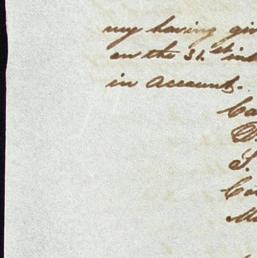 my having giv
on the 31st in
in account.
Ca
D
S.
Co
Ma